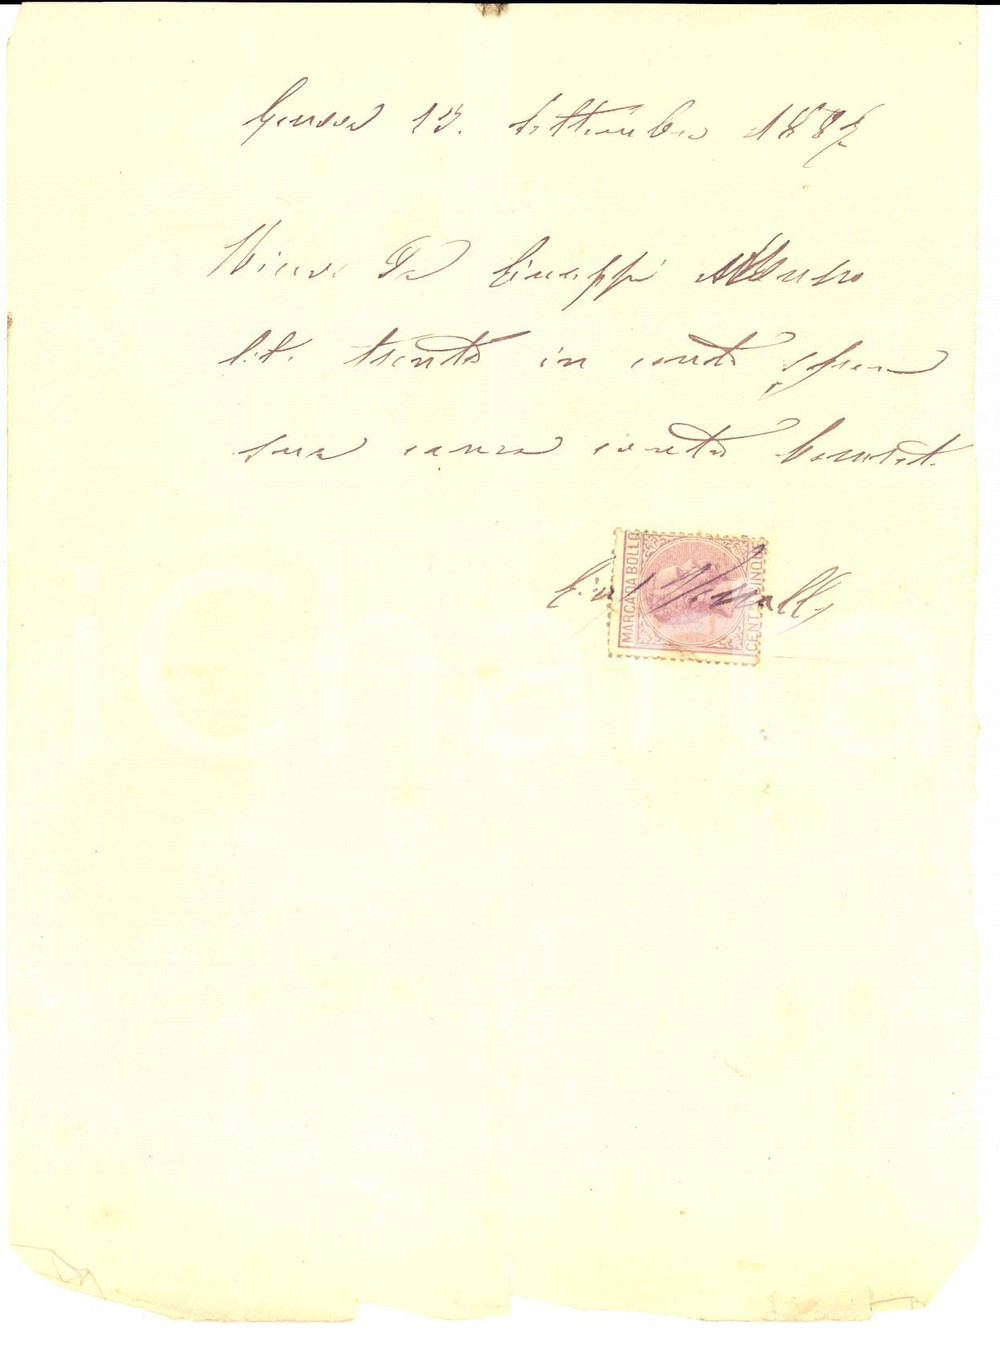 Genova 13. Settembre 1887
Ricevo Da Giuseppe
lit. trenta in conto spese
sua causa contro
MARCA DA BOLLO
CENT. CINQUE
iCharta